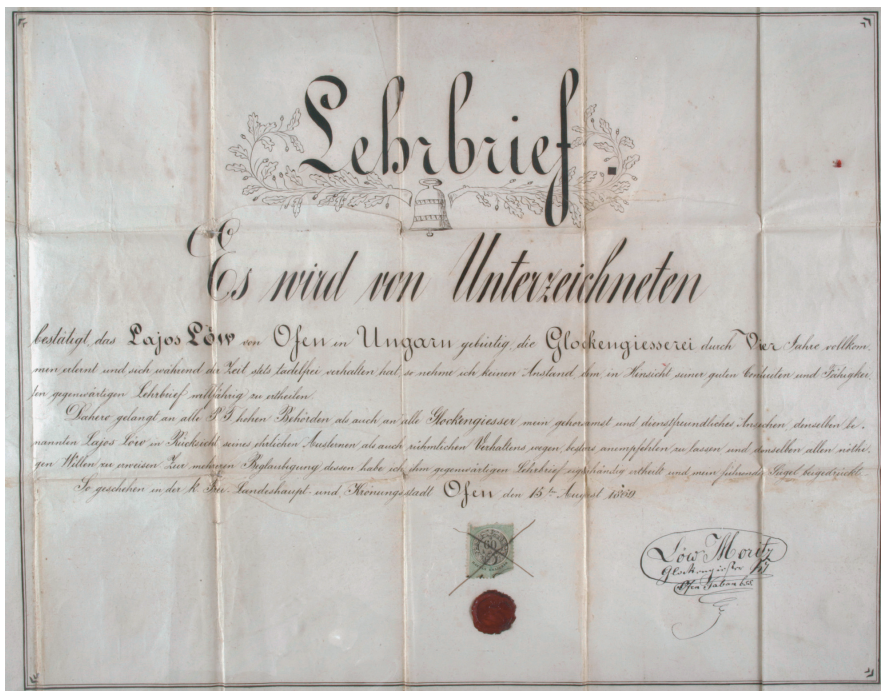 Lehrbrief.
Es wird von Unterzeichneten
bestätigt, das Lajos Löw von Ofen in Ungarn gebürtig, die Glockengiesserei durch Vier Jahre vollkom-
men erlernt und sich während der Zeit stets tadelfrei verhalten hat, so nehme ich keinen Anstand, dem in Hinsicht seiner guten Conduiten und Fähigkei-
ten gegenwärtigen Lehrbrief willfährig zu ertheilen.
Dahero gelangt an alle P. T. hohen Behörden als auch an alle Glockengiesser mein gehorsamst und dienstfreundliches Ansuchen, denselben be-
nannten Lajos Löw in Rücksicht seines ehrlichen Auslernen als auch rühmlichen Verhaltens wegen bestens anempfehlen zu lassen und denselben allen nöthi-
gen Willen zu erweisen. Zur mehreren Beglaubigung dessen habe ich den gegenwärtigen Lehrbrief eigenhändig ertheilt und mein führendes Sigel beigedrückt.
So geschehen in der k. Landeshaupt- und Krönungsstadt Ofen den 15ten August 1869
60
Löw Moritz
Glockengiesser
Ofen